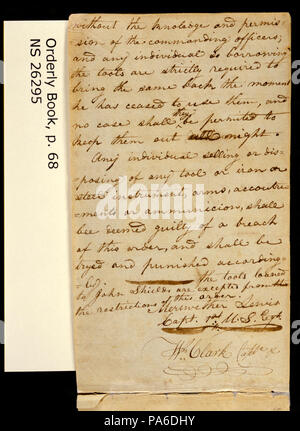 Orderly Book, p. 68
NS 26295
without the knoledge and permis-
sion of the commanding officers;
and any individual so borrowing
the tools are strictly required to
bring the same back the moment
he has ceased to use them, and
no case shall they be permited to
keep them out all night.
Any individual selling or dis-
posing of any tool or iron or
steel instrument, arms, accoutre-
ments or ammunicion, shall
bee deemed guilty of a breach
of this order, and shall be
tryed and punished according-
ly. the tools loaned
to John Shields are excepted from the
the restrictions of this order.
Meriwether Lewis
Capt. 1st. U.S. Regt.
Wm. Clark Capt. &
alamy
PA6DHY